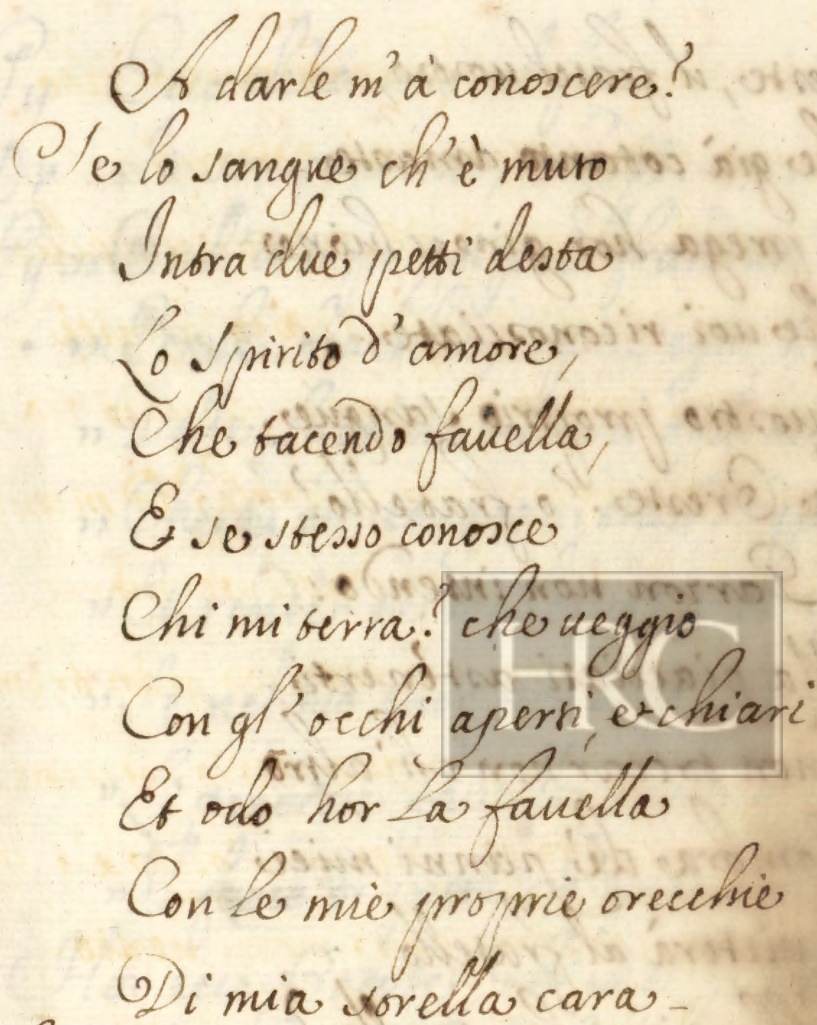 A darle m'à conoscere?
Se lo sangue ch'è muto
Intra due petti desta
Lo Spirito d'amore,
Che tacendo fauella,
E se stesso conosce
Chi mi terrà? che ueggio
Con gl'occhi aperti, e chiari
Et odo hor La fauella
Con le mie proprie orecchie
Di mia sorella cara -
HRC